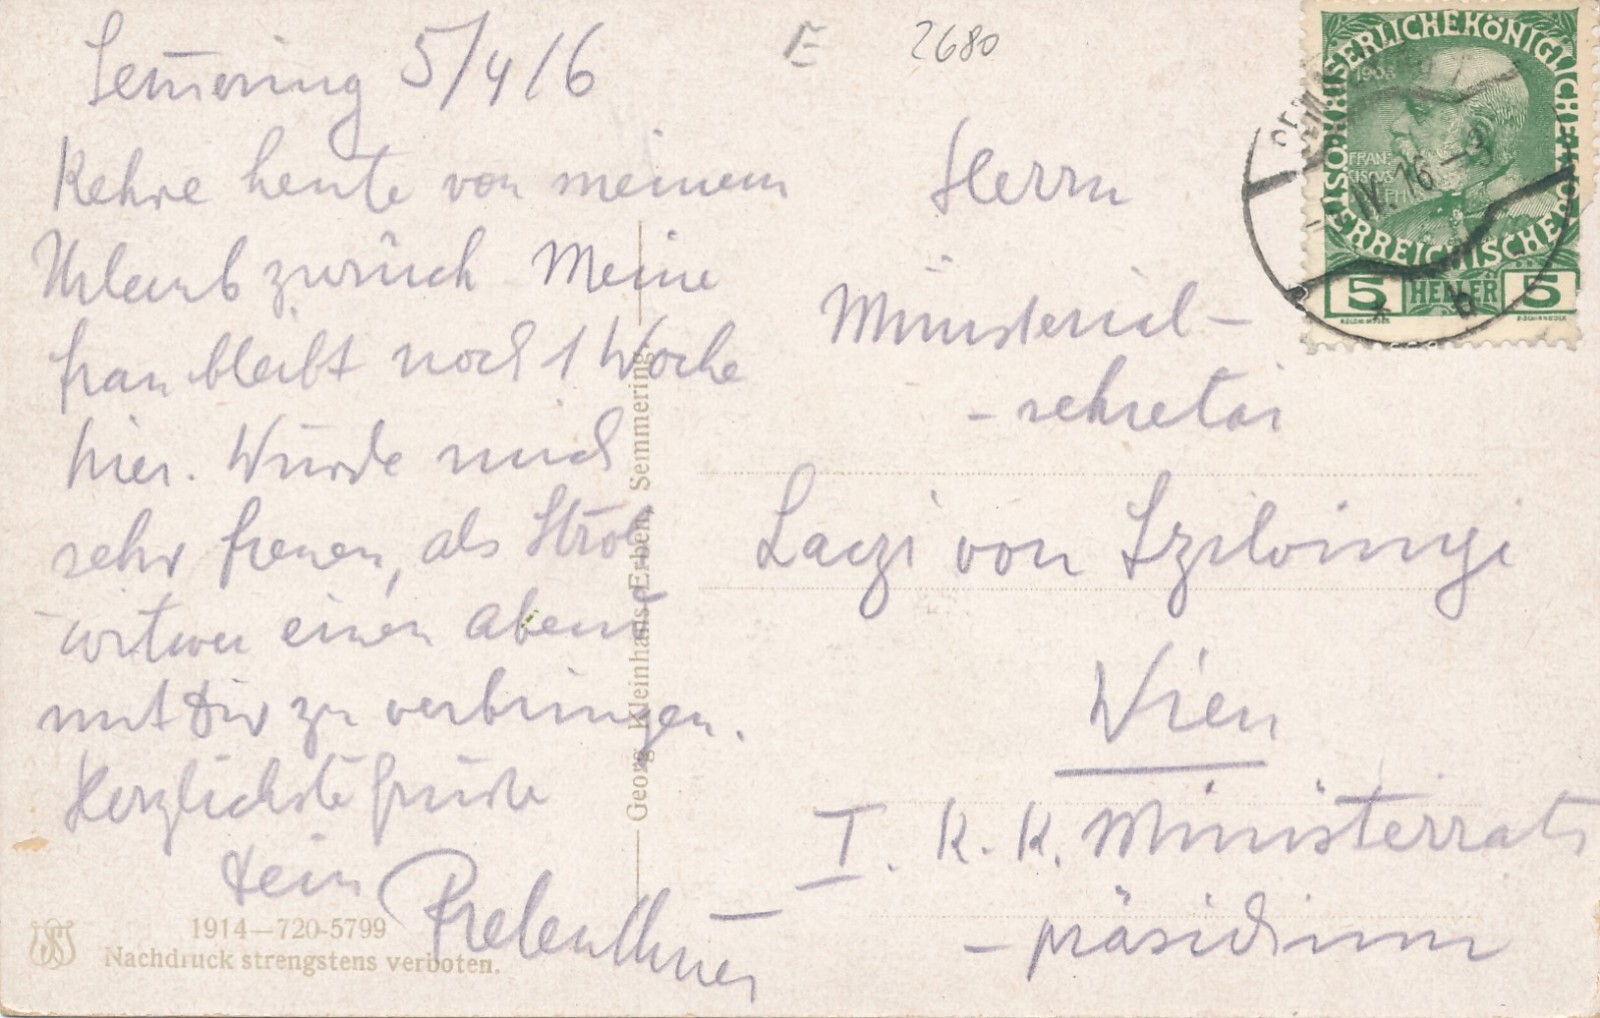 Sem̄ering 5/4/6
Kehre heute von meinem
Urlaub zurück Meine
frau bleibt noch 1 Woche
hier. Würde mich
sehr freuen, als Stroh
witwer einen Abend
mit Dir zu verbringen.
Herzlichste grüße
Dein
E 2680
Herrn
Ministerial-
-sekretär
Laczi von
Wien
I. K. K. Ministerrats
-präsidium
KAISERLICHEKÖNIGLICHE
ÖSTERREICHISCHE
1908
5 HELLER 5
IV. 16
b
Georg Kleinhans Erben, Semmering.
1914—720-5799
Nachdruck strengstens verboten.